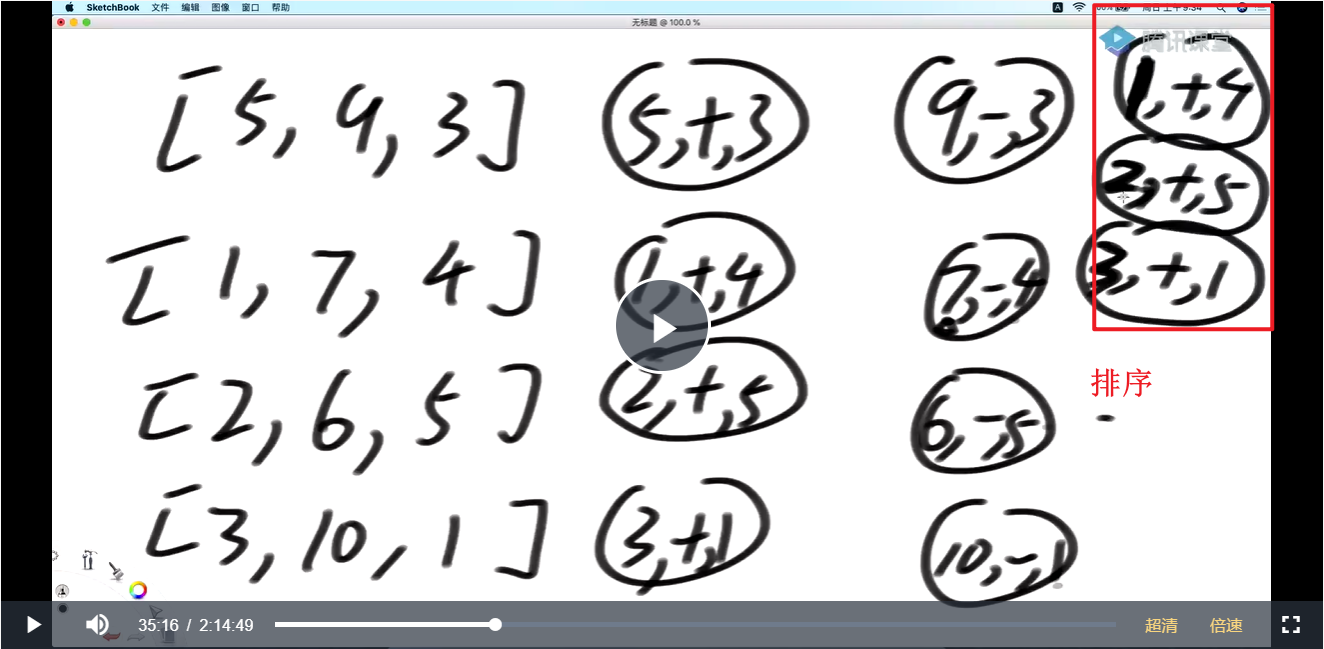 SketchBook 文件 编辑 图像 窗口 帮助
无标题 @ 100.0 %
腾讯课堂
[5, 9, 3] 5,+,3 9,-,3 1,+,4
2,+,5
[1, 7, 4] 1,+,4 7,-,4 3,+,1
排序
[2, 6, 5] 2,+,5 6,-,5
[3, 10, 1] 3,+,1 10,-,1
35:16 / 2:14:49 超清 倍速